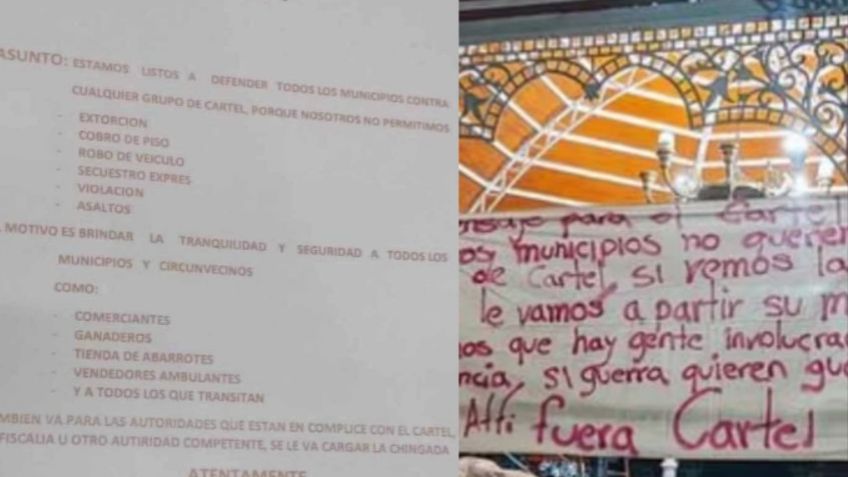 ASUNTO: ESTAMOS LISTOS A DEFENDER TODOS LOS MUNICIPIOS CONTRA
CUALQUIER GRUPO DE CARTEL, PORQUE NOSOTROS NO PERMITIMOS
- EXTORCION
- COBRO DE PISO
- ROBO DE VEICULO
- SECUESTRO EXPRES
- VIOLACION
- ASALTOS
MOTIVO ES BRINDAR LA TRANQUILIDAD Y SEGURIDAD A TODOS LOS
MUNICIPIOS Y CIRCUNVECINOS
COMO:
- COMERCIANTES
- GANADEROS
- TIENDA DE ABARROTES
- VENDEDORES AMBULANTES
- Y A TODOS LOS QUE TRANSITAN
MBIEN VA PARA LAS AUTORIDADES QUE ESTAN EN COMPLICE CON EL CARTEL,
FISCALIA U OTRO AUTIRIDAD COMPETENTE, SE LE VA CARGAR LA CHINGADA
ATENTAMENTE
ensaje para el Cartel
os municipios no quieren
de Cartel, si vemos la
le vamos a partir su m
os que hay gente involucra
ncia, si guerra quieren gue
Att: fuera Cartel